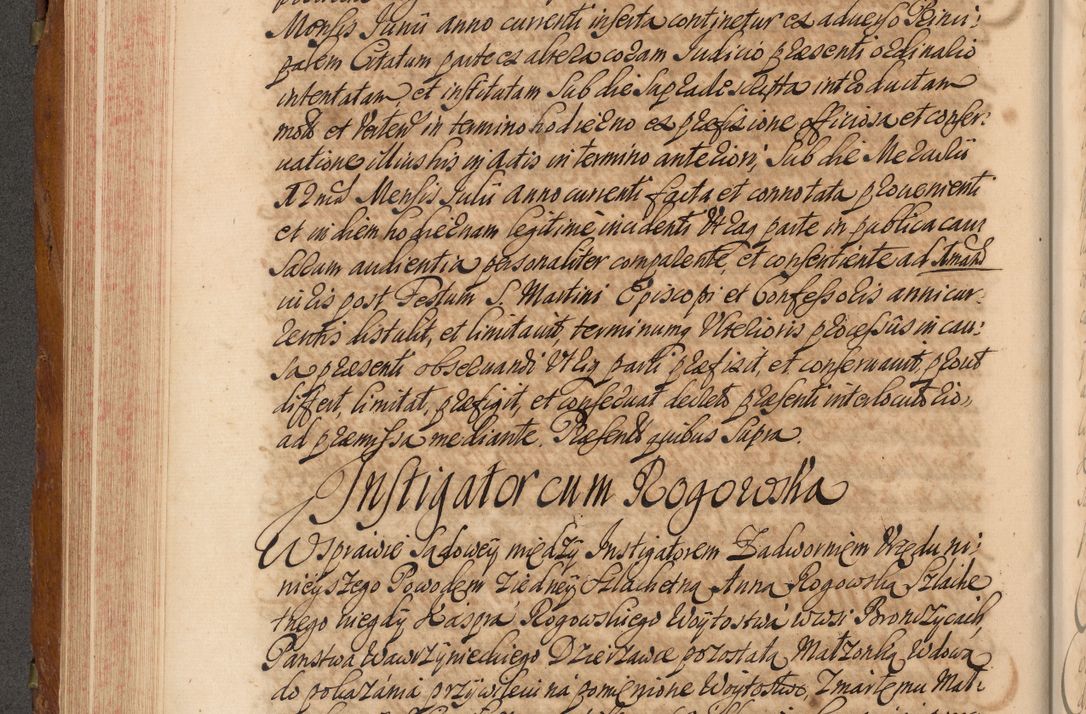 Mensis Junii anno currenti inserta continetur ex adverso Princi:
palem Citatum parte ex altera coram Judicio præsenti ordinario
intentatam, et institutam Sub die Supradescripta introductam
moto et Verten in termino hodierno ex præfixione officiosa et conser:
vatione illius his in Actis in termino anteriori, Sub die Mercurii
12ma Mensis Julii Anno currenti facta et connotata provenienti
et in diem hodiernam legitimè incidenti Utraq parte in publica cau
Sarum audientia personaliter comparente, et consentiente ad
iuris post Festum S. Martini Episcopi et Confessoris anni cur:
rentis distulit, et limitavit, terminumq Ulterioris processus in cau:
sa præsenti observandi Utriq parti præfixit, et conservavit, prout
differt, limitat, præfigit, et conservat decreto præsenti interlocutorio
ad præmissa mediante. Præsentibus quibus Supra.
Instigator cum Rogowska
W Sprawie Sądowey między Instigatorem Zadworniem Urzędu ni:
nieyszego Powodem z iedney Szlachetną Anną Rogowską Szlache
tnego niegdy Kaspra Rogowskiego Woytostwa wwsi Bronczycach
Państwa Wawrzynieckiego Dzierzawce pozostałą Małzonką Wdową
do pokazania przywileiu na pomienione Woytostwo, Zmarłemu Małż